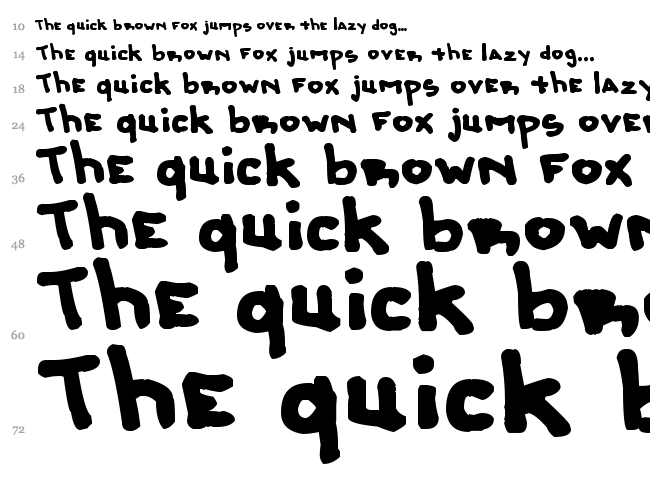 10 The quick brown fox jumps over the lazy dog...
14 The quick brown fox jumps over the lazy dog...
18 The quick brown fox jumps over the lazy
24 The quick brown fox jumps over
36 The quick brown fox
48 The quick brown
60 The quick br
72 The quick b